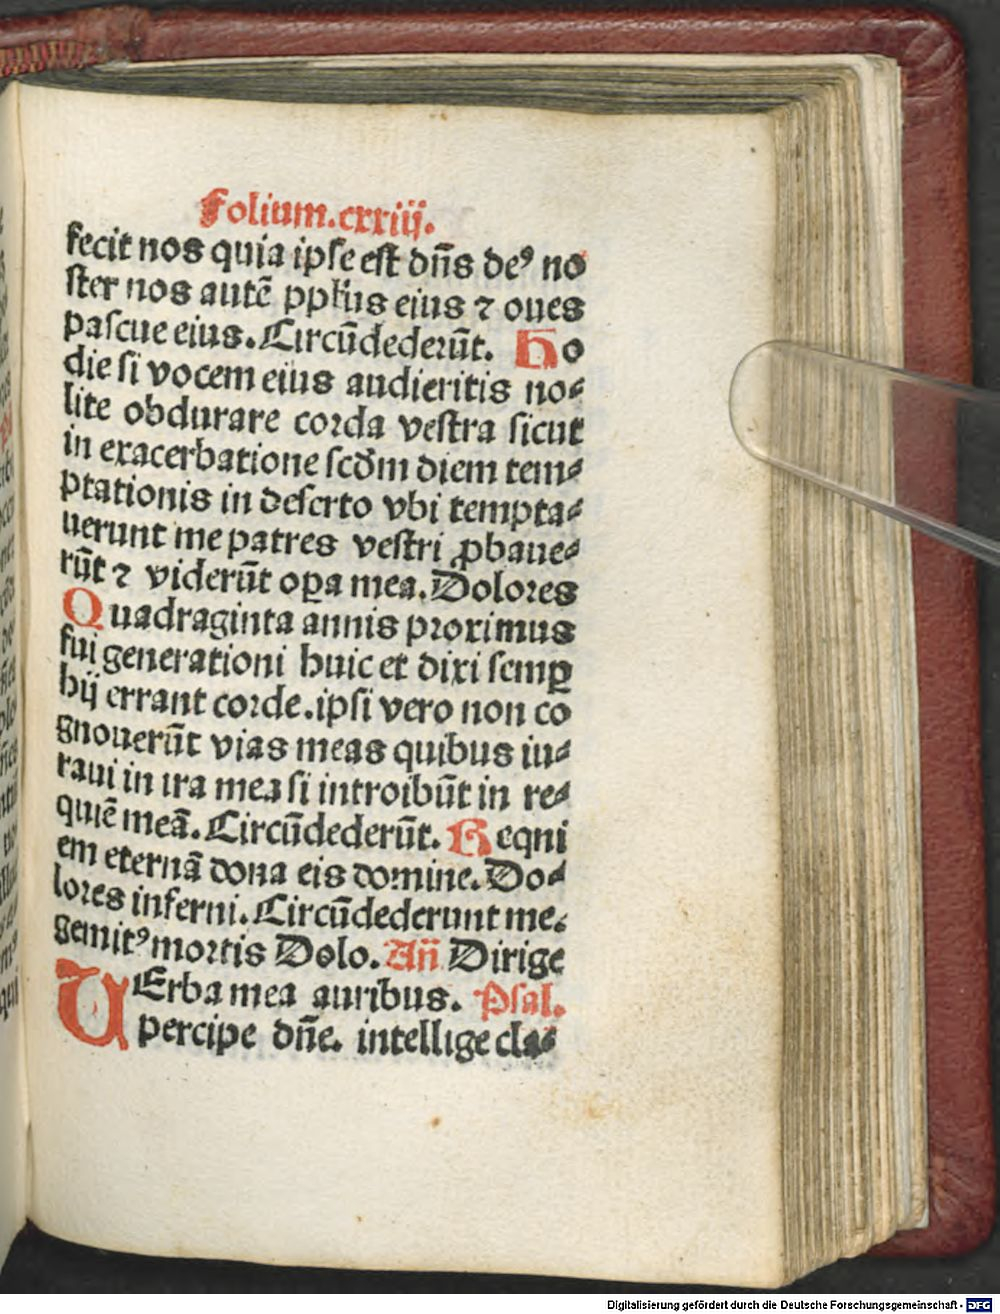 Folium.cxxiij.
fecit nos quia ipse est dñs deꝰ no
ster nos autē pplūs eius ⁊ oues
pascue eius. Circūdederūt. Ho
die si vocem eius audieritis no⸗
lite obdurare corda vestra sicut
in exacerbatione scd̄m diem tem⸗
ptationis in deserto vbi tempta⸗
uerunt me patres vestri ꝓbaue⸗
rūt ⁊ viderūt oꝑa mea. Dolores
Quadraginta annis proximus
fui generationi huic et dixi semꝑ
hij errant corde. ipsi vero non co
gnouerūt vias meas quibus iu⸗
raui in ira mea si introibūt in re⸗
quiē meā. Circūdederūt. Reqni
em eternā dona eis domine. Do⸗
lores inferni. Circūdederunt me.
gemitꝰ mortis Dolo. Añ Dirige
VErba mea auribus. Psal.
percipe dñe. intellige cla⸗
Digitalisierung gefördert durch die Deutsche Forschungsgemeinschaft - DFG